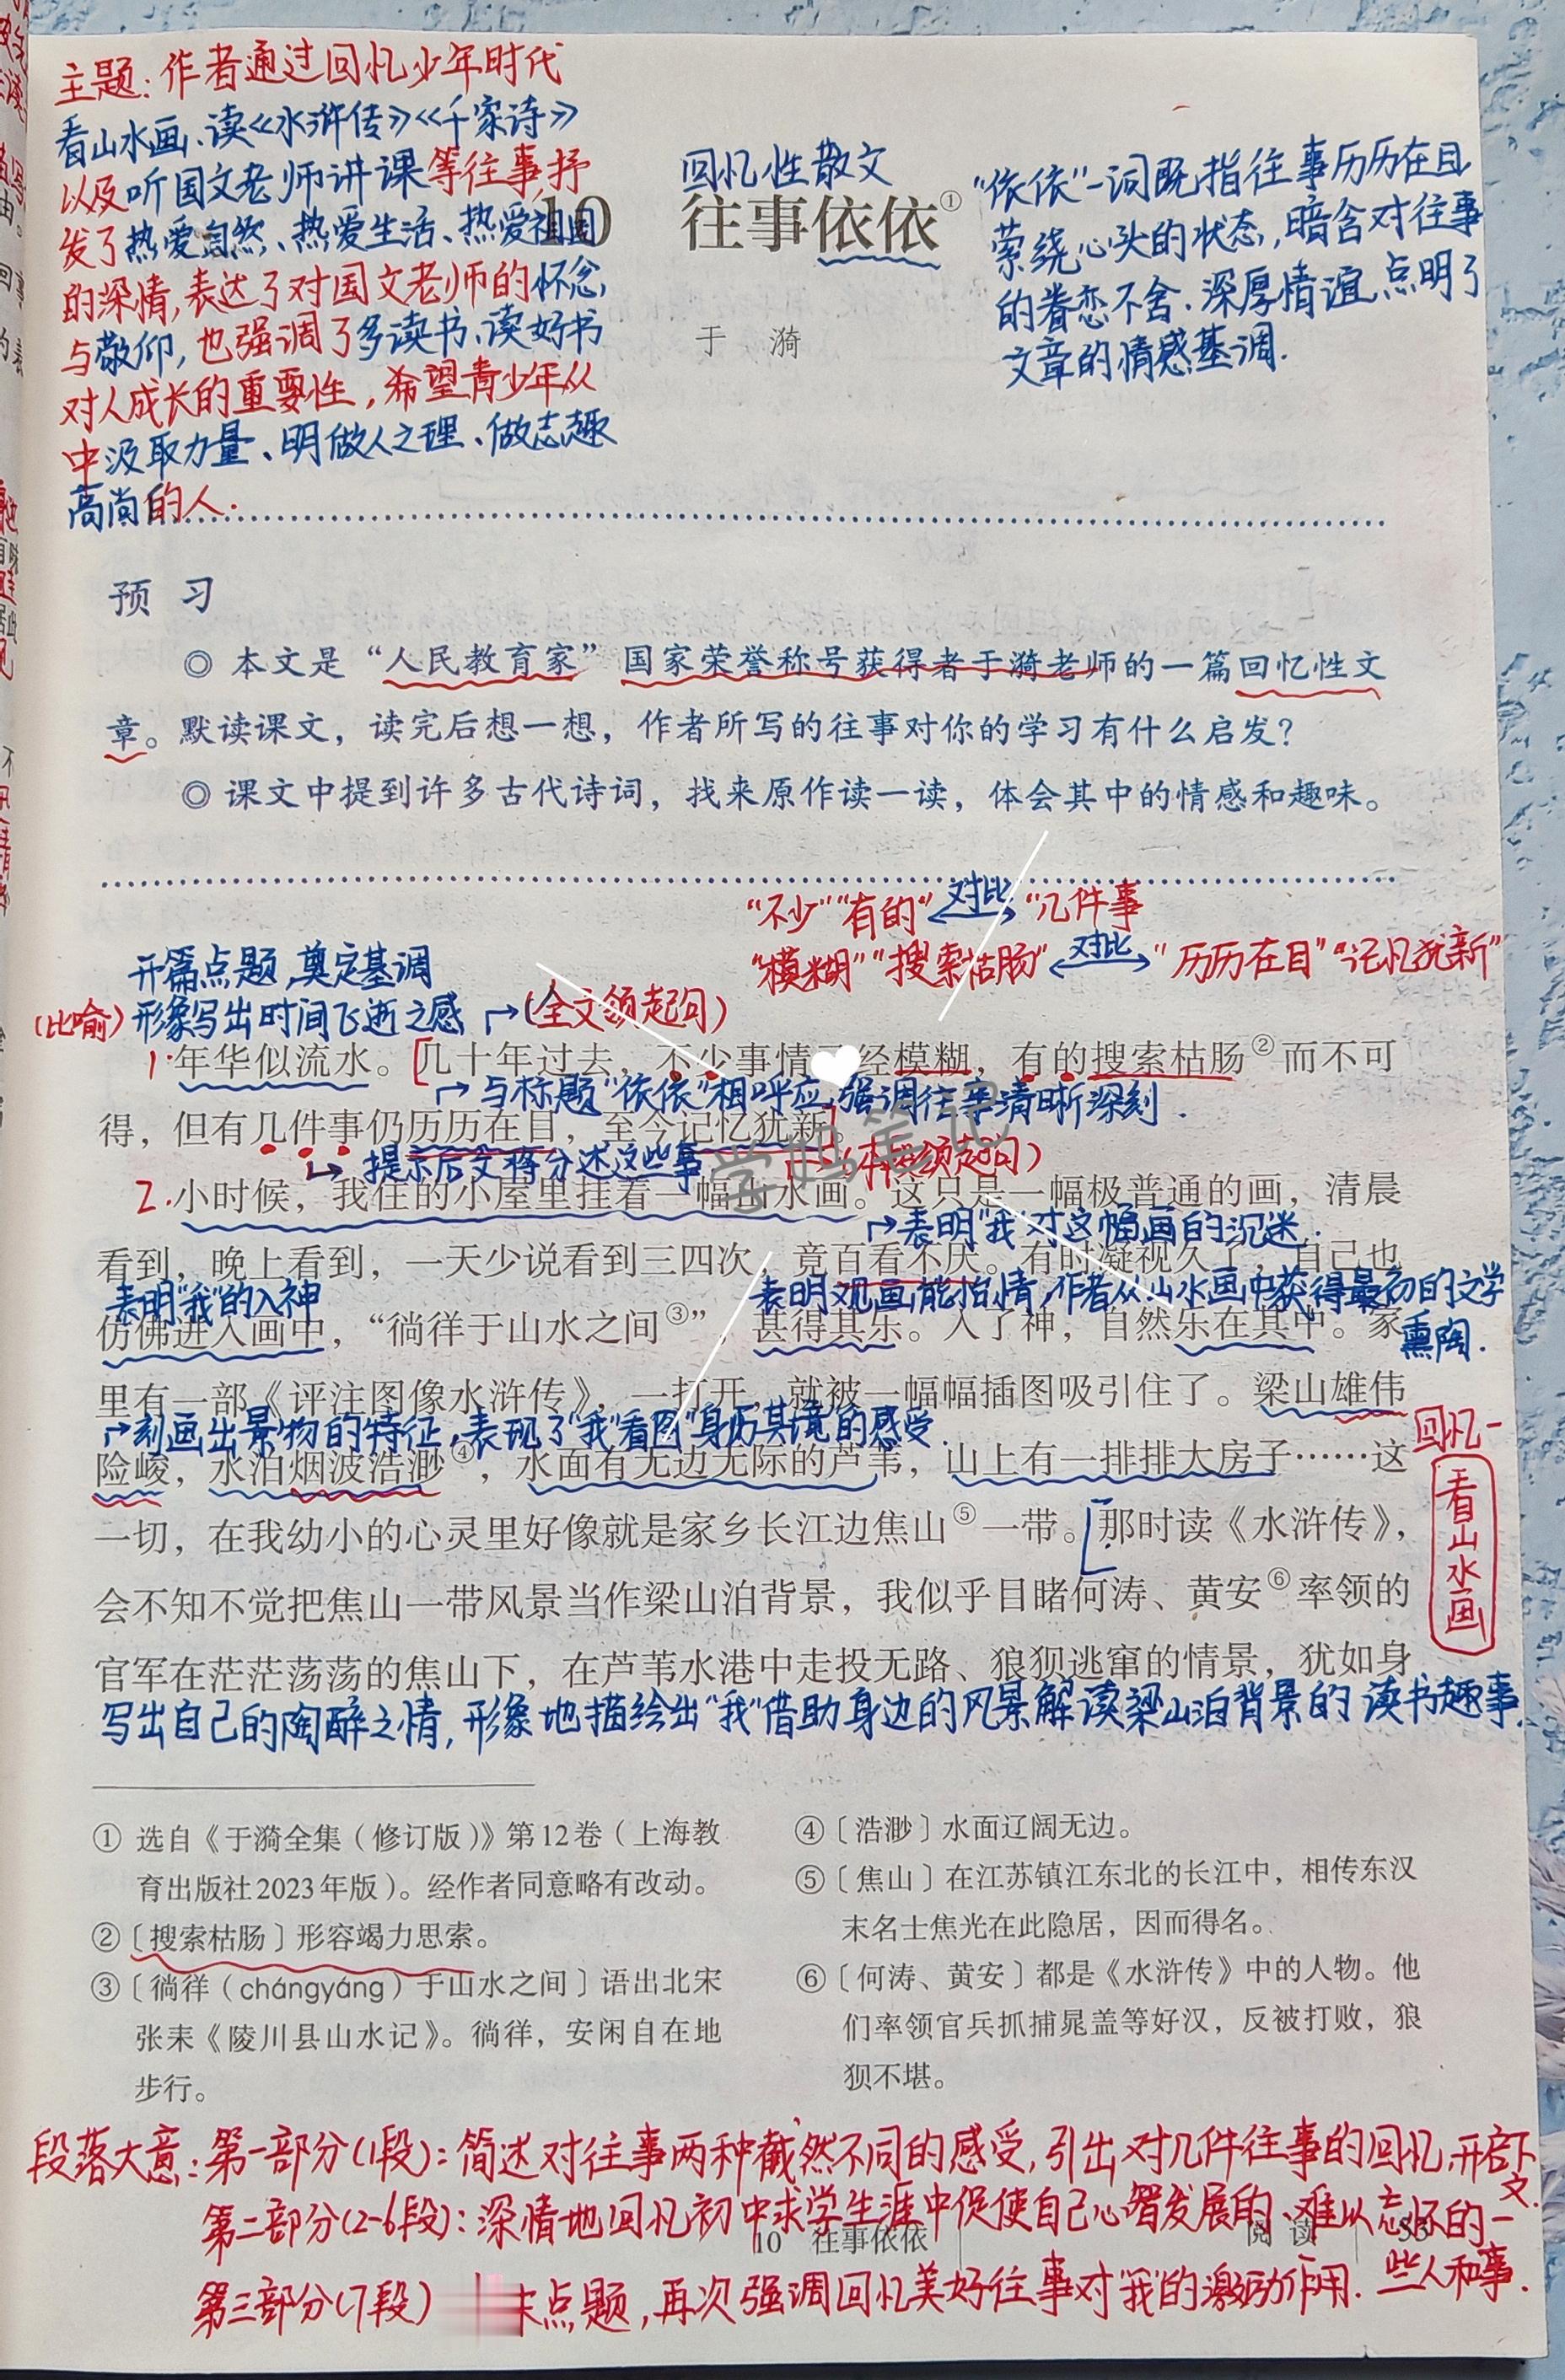 主题：作者通过回忆少年时代
看山水画、读《水浒传》《千家诗》
以及听国文老师讲课等往事，抒
发了热爱自然、热爱生活、热爱祖国
的深情，表达了对国文老师的怀念
与敬仰，也强调了多读书、读好书
对人成长的重要性，希望青少年从
中汲取力量、明做人之理、做志趣
高尚的人.
回忆性散文
10 往事依依①
于漪
“依依”一词既指往事历历在目
萦绕心头的状态，暗含对往事
的眷恋不舍.深厚情谊，点明了
文章的情感基调.
预 习
◎ 本文是“人民教育家”国家荣誉称号获得者于漪老师的一篇回忆性文
章。默读课文，读完后想一想，作者所写的往事对你的学习有什么启发？
◎ 课文中提到许多古代诗词，找来原作读一读，体会其中的情感和趣味。
“不少”“有的” 对比 “几件事
“模糊”“搜索枯肠” 对比 “历历在目”“记忆犹新”
开篇点题，奠定基调
(比喻) 形象写出时间飞逝之感 (全文领起句)
1. 年华似流水。几十年过去，不少事情 经模糊，有的搜索枯肠②而不可
与标题“依依”相呼应，强调往事清晰深刻.
得，但有几件事仍历历在目，至今记忆犹新。
提示后文将分述这些事 (本 领起句)
学妈笔记
2. 小时候，我住的小屋里挂着一幅山水画。这只是一幅极普通的画，清晨
表明“我”对这幅画的沉迷.
看到，晚上看到，一天少说看到三四次，竟百看不厌。有时凝视久了，自己也
表明“我”的入神 表明观画能怡情，作者从山水画中获得最初的文学
熏陶.
仿佛进入画中，“徜徉于山水之间③”，甚得其乐。入了神，自然乐在其中。家
里有一部《评注图像水浒传》，一打开，就被一幅幅插图吸引住了。梁山雄伟
刻画出景物的特征，表现了“我”看图“身历其境”的感受.
险峻，水泊烟波浩渺④，水面有无边无际的芦苇，山上有一排排大房子……这
回忆一
看山水画
一切，在我幼小的心灵里好像就是家乡长江边焦山⑤一带。那时读《水浒传》，
会不知不觉把焦山一带风景当作梁山泊背景，我似乎目睹何涛、黄安⑥率领的
官军在茫茫荡荡的焦山下，在芦苇水港中走投无路、狼狈逃窜的情景，犹如身
写出自己的陶醉之情，形象地描绘出“我”借助身边的风景解读梁山泊背景的读书趣事.
① 选自《于漪全集（修订版）》第12卷（上海教
育出版社2023年版）。经作者同意略有改动。
②〔搜索枯肠〕形容竭力思索。
③〔徜徉（chángyáng）于山水之间〕语出北宋
张耒《陵川县山水记》。徜徉，安闲自在地
步行。
④〔浩渺〕水面辽阔无边。
⑤〔焦山〕在江苏镇江东北的长江中，相传东汉
末名士焦光在此隐居，因而得名。
⑥〔何涛、黄安〕都是《水浒传》中的人物。他
们率领官兵抓捕晁盖等好汉，反被打败，狼
狈不堪。
段落大意：第一部分(1段)：简述对往事两种截然不同的感受，引出对几件往事的回忆，开启下
文.
第二部分(2-6段)：深情地回忆初中求学生涯中促使自己心智发展的、难以忘怀的一
些人和事.
第三部分(7段) 末点题，再次强调回忆美好往事对“我”的激励作用.
10 往事依依
阅 读
53